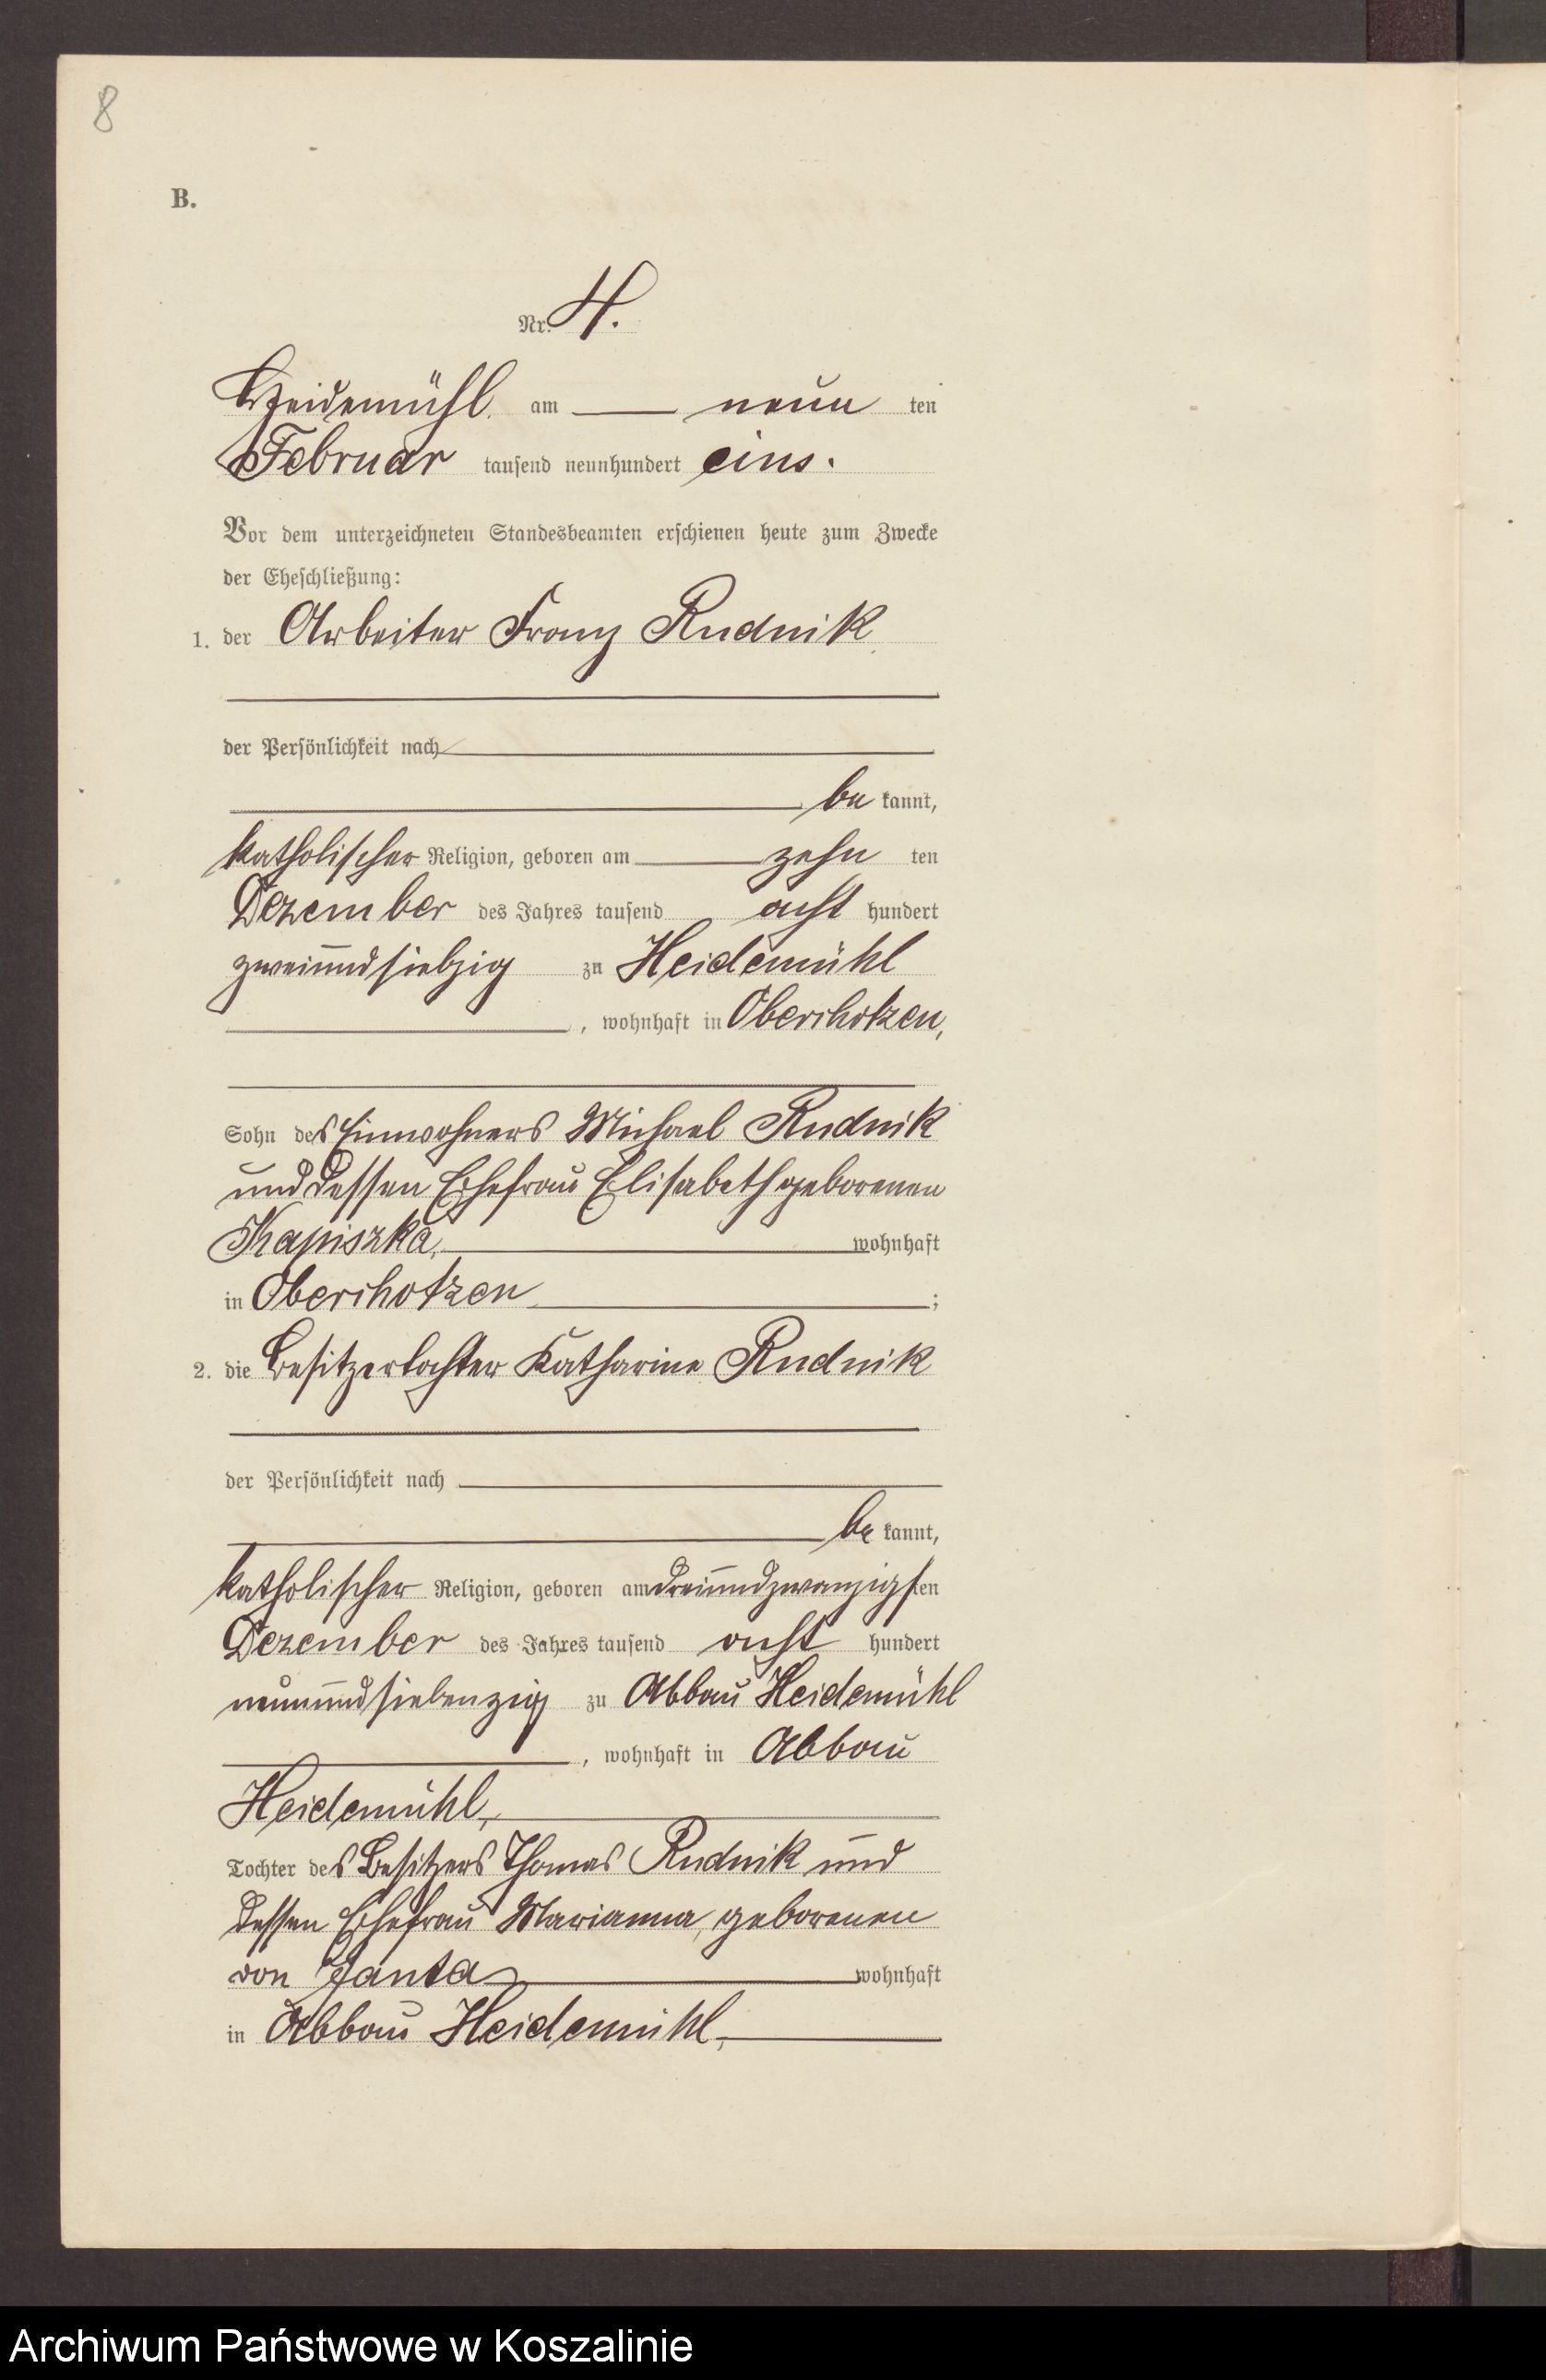 8
B.
Nr. 4.
Heidemühl am neun ten
Februar tausend neunhundert eins.
Vor dem unterzeichneten Standesbeamten erschienen heute zum Zwecke
der Eheschließung:
1. der Arbeiter Franz Rudnik
der Persönlichkeit nach
be kannt,
katholischer Religion, geboren am zehn ten
Dezember des Jahres tausend acht hundert
zweiundsiebzig zu Heidemühl
, wohnhaft in Oberchotzen,
Sohn des Einwohners Michael Rudnik
und dessen Ehefrau Elisabeth geborenen
Kapiszka, wohnhaft
in Oberchotzen ;
2. die Besitzertochter Katharine Rudnik
der Persönlichkeit nach
be kannt,
katholischer Religion, geboren am dreiundzwanzigsten
Dezember des Jahres tausend acht hundert
neunundsiebenzig zu Abbau Heidemühl
, wohnhaft in Abbau
Heidemühl,
Tochter des Besitzers Thomas Rudnik und
dessen Ehefrau Marianna, geborenen
von Janta wohnhaft
in Abbau Heidemühl,
Archiwum Państwowe w Koszalinie